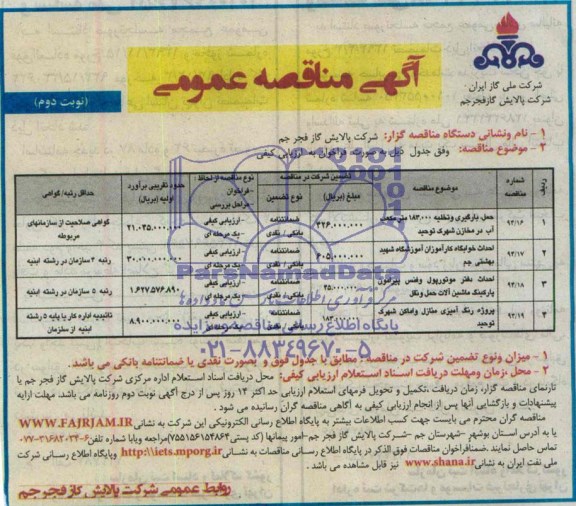 آگهی مناقصه عمومی
(نوبت دوم)
شرکت ملی گاز ایران
شرکت پالایش گاز فجرجم
۱ - نام ونشانی دستگاه مناقصه گزار: شرکت پالایش گاز فجر جم
۲ - موضوع مناقصه: وفق جدول ذیل به صورت فراخوان به ارزیابی کیفی
ردیف
شماره مناقصه
موضوع مناقصه
تضمین شرکت در مناقصه
مبلغ (ریال)
نوع تضمین
نوع مناقصه از لحاظ: - فراخوان - مراحل بررسی
حدود تقریبی برآورد اولیه (ریال)
حداقل رتبه/ گواهی
۱
۹۴/۱۶
حمل، بارگیری وتخلیه ۱۸۳،۰۰۰ متر مکعب آب در مخازن شهرک توحید
ضمانتنامه بانکی / نقدی
- ارزیابی کیفی - یک مرحله ای
۲۱.۰۳۵.۰۰۰.۰۰۰
گواهی صلاحیت از سازمانهای مربوطه
۲
۹۴/۱۷
احداث خوابگاه کارآموزان آموزشگاه شهید بهشتی جم
۶۰۵،۰۰۰،۰۰۰
ضمانتنامه بانکی / نقدی
- ارزیابی کیفی - یک مرحله ای
رتبه ۴ سازمان در رشته ابنیه
۳
۹۴/۱۸
احداث دفتر موتورپول وفنس پیرامون پارکینگ ماشین آلات حمل ونقل
ضمانتنامه بانکی / نقدی
- ارزیابی کیفی - یک مرحله ای
۱.۶۲۷.۵۷۶.۸۹۰
رتبه ۵ سازمان در رشته ابنیه
۴
۹۴/۱۹
پروژه رنگ آمیزی منازل واماکن شهرک توحید
ضمانتنامه بانکی / نقدی
- ارزیابی کیفی - یک مرحله ای
۸.۹۰۰.۰۰۰.۰۰۰
تائیدیه اداره کار یا پایه ۵ رشته ابنیه از سازمان
ParsNamadData
پایگاه اطلاع رسانی مناقصه و مزایده
۰۲۱-۸۸۳۴۹۶۷۰-۵
۱ - میزان ونوع تضمین شرکت در مناقصه: مطابق با جدول فوق و بصورت نقدی یا ضمانتنامه بانکی می باشد.
۲ - محل زمان ومهلت دریافت اسناد استعلام ارزیابی کیفی: محل دریافت اسناد استعلام اداره مرکزی شرکت پالایش گاز فجر جم یا
تارنمای مناقصه گزار، زمان دریافت ،تکمیل و تحویل فرمهای استعلام ارزیابی حداکثر ۱۴ روز پس از درج آگهی نوبت دوم روزنامه می باشد. مهلت ارایه
پیشنهادات و بازگشایی آنها پس از انجام ارزیابی کیفی به آگاهی مناقصه گران رسانیده می شود .
مناقصه گران محترم می بایست جهت کسب اطلاعات بیشتر به پایگاه اطلاع رسانی الکترونیکی این شرکت به نشانی WWW.FAJRJAM.IR
یا به آدرس استان بوشهر -شهرستان جم -شرکت پالایش گاز فجر جم -امور پیمانها (کد پستی ۷۵۵۱۵۶۱۵۴۸۶۴) مراجعه ویابا شماره تلفن ۶-۰۷۷-۳۱۶۸۲۰۳۴
تماس حاصل نمایند .ضمنافراخوان مناقصات فوق الذکر در پایگاه اطلاع رسانی مناقصات به نشانی http://iets.mporg.ir وپایگاه اطلاع رسانی شرکت
ملی نفت ایران به نشانی www.shana.ir نیز قابل مشاهده می باشد .
روابط عمومی شرکت پالایش گاز فجر جم